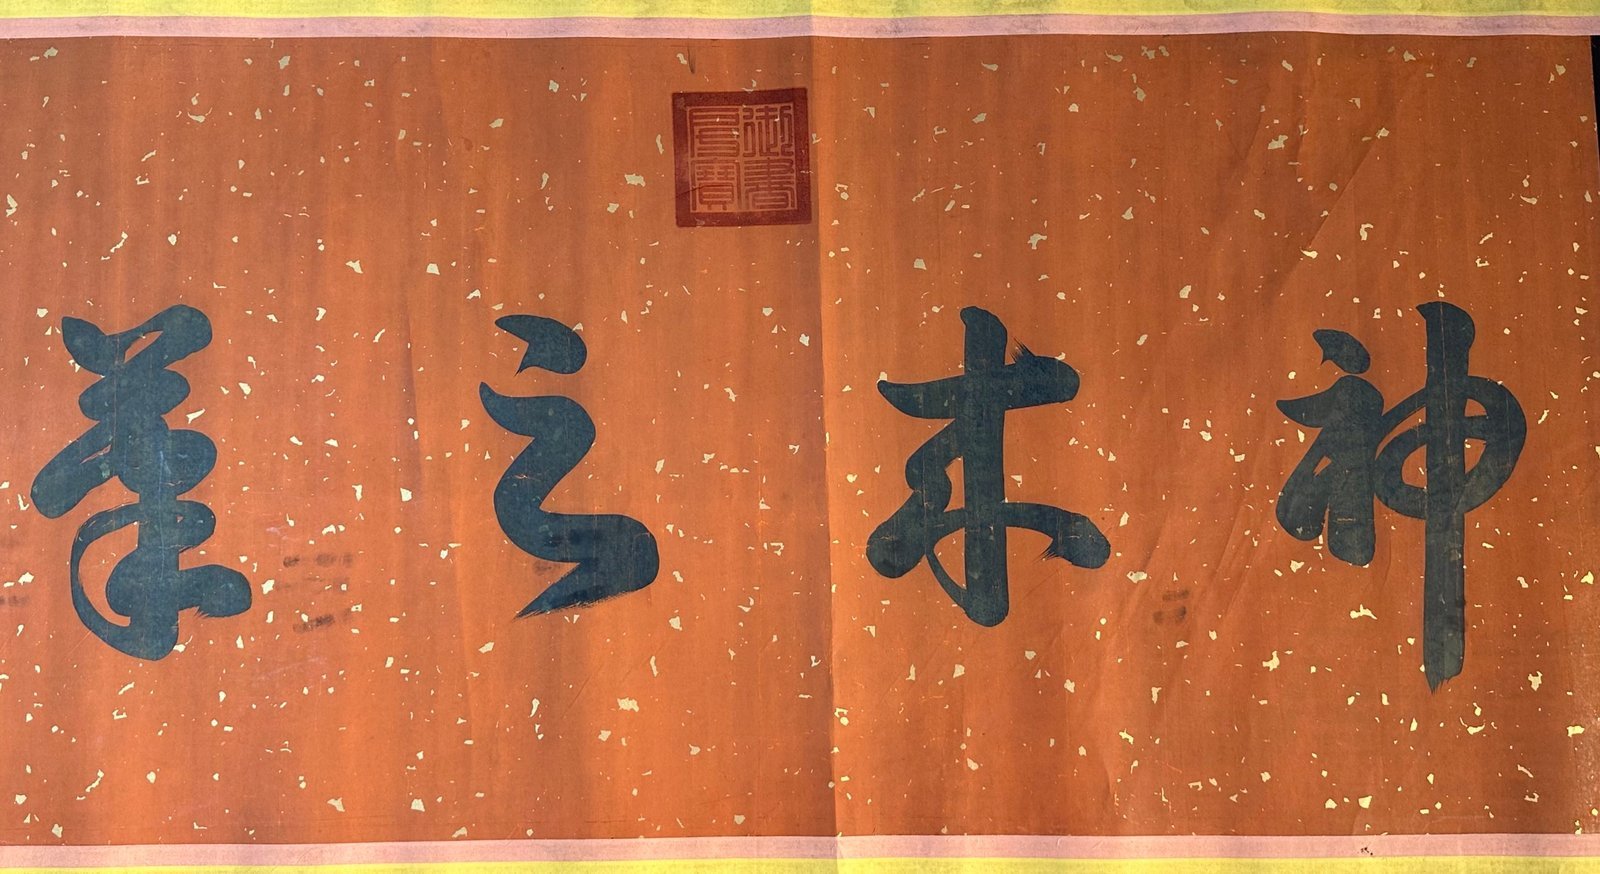 神來之筆
御書房寶